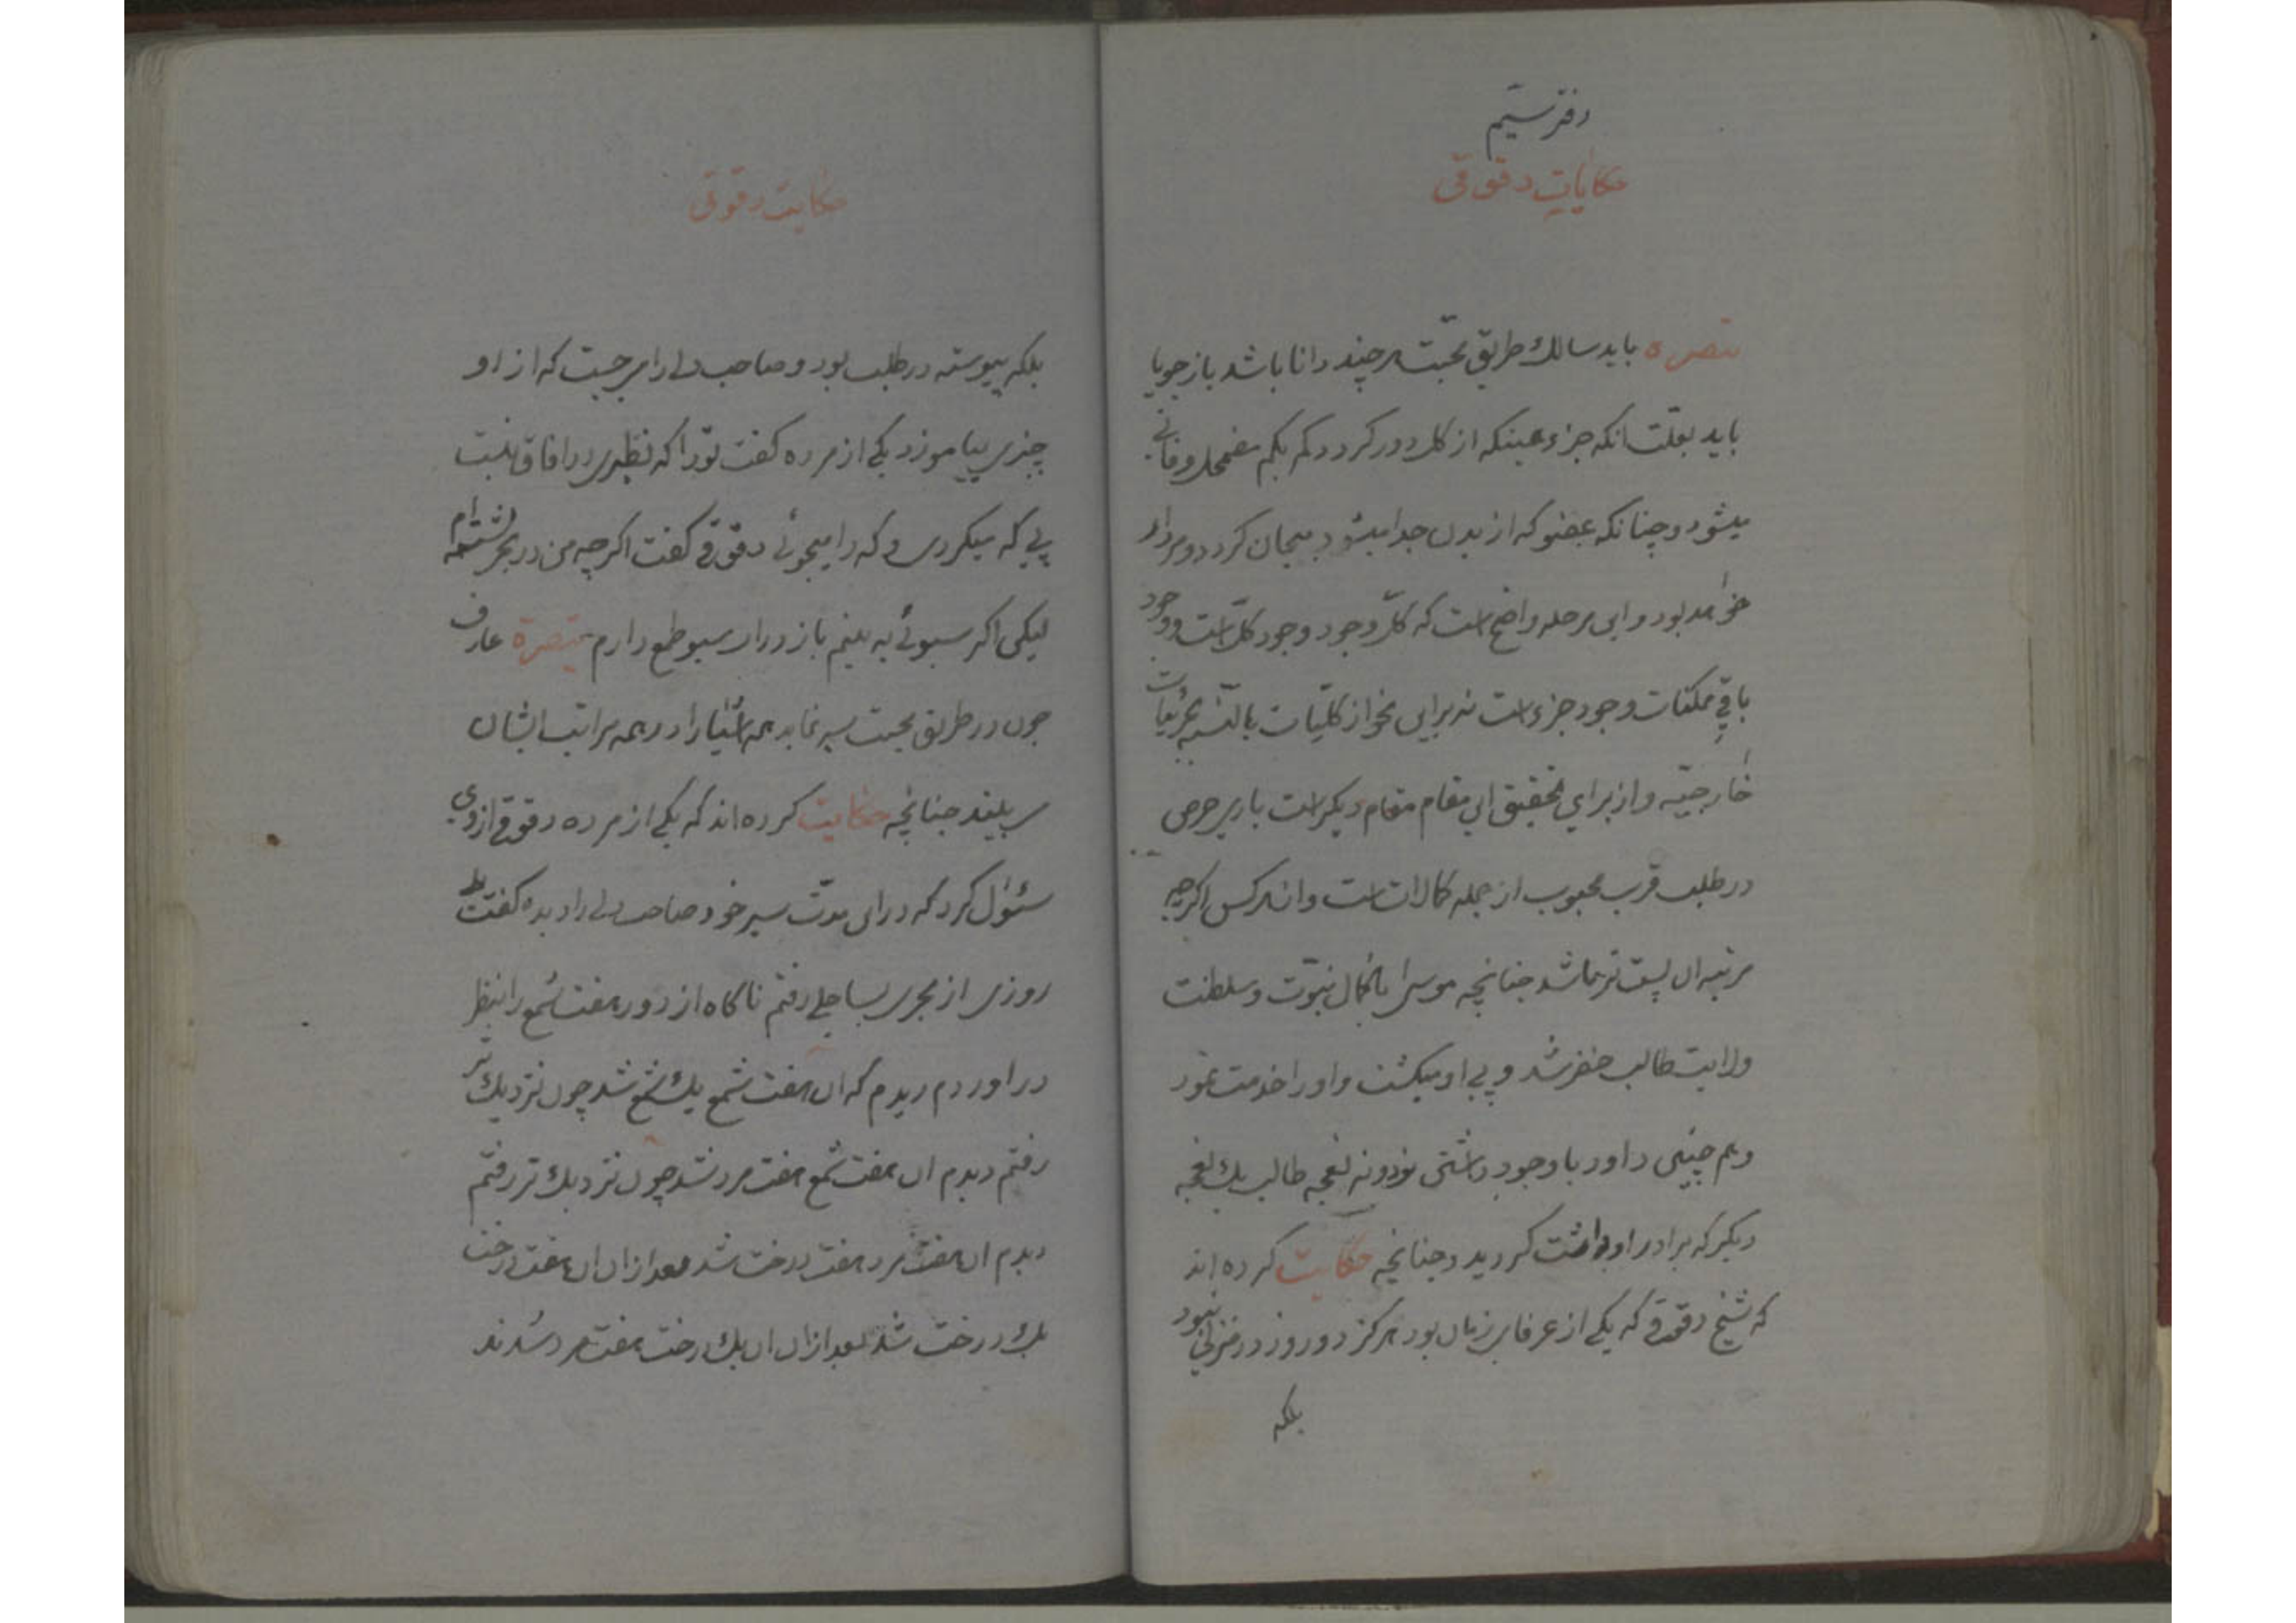 دفتر سیم
حکایات دقوقی
تبصره باید سالك طریق محبّت هر چند دانا باشد باز جویا
باید بعلّت انکه جزء همینکه از کل دور کردد کم کم مضمحل و فانی
میشود و چنانکه عضو که از بدن جدا میشود بیجان کردد و مردار
خواهد بود و این مرحله واضح است که کلّ وجود وجود کلّ است و وجود
باقی ممکنات وجود جزء است نه براین نحو از کلّیات بالنّسبه بجزئیات
خارجیّه و از برای تحقیق این مقام مقام دیکر است باری حرص
در طلب قرب محبوب از جمله کمالات است و از هر کس اکرچه
مرتبه ان پست تر باشد چنانچه موسی با کمال نبوّت و سلطنت
ولایت طالب خضر شد و پی او میکشت و او را خدمت نمود
و هم چنین داود با وجود داشتن نود و نه نعجه طالب یك نعجه
دیکر که برادر او داشت کردید و چنانچه حکایت کرده اند
که شیخ دقوقی که یکی از عرفای زمان بود هرکز دو روز در منزلی نبود
بلکه
حکایت دقوقی
بلکه پیوسته در طلب بود و صاحب دلی را میجست که از او
چیزی بیاموزد یکی از مرده کفت تو را که نظیری در افاق نیست
پی که میکردی و که را میجوئی دقوقی کفت اکرچه من در بحر نشسته ام
لیکن اکر سبوئی به بینم باز در ان سبو طمع دارم تبصرة عارف
چون در طریق محبت سیر نماید همه اشیا را در همه مراتب ایشان
ببیند چنانچه حکایت کرده اند که یکی از مرده دقوقی از وی
سئوال کرد که در این مدّت سیر خود صاحب دلی را دیده کفت بلی
روزی از بحری بساحلی رفتم ناکاه از دور هفت شمع را بنظر
در اوردم دیدم که ان هفت شمع یك شمع شد چون نزدیك تر
رفتم دیدم ان هفت شمع هفت مرد شد چون نزدیك تر رفتم
دیدم ان هفت مرد هفت درخت شد بعد از ان ان هفت درخت
یك درخت شد بعد از ان ان یك درخت هفت مرد شدند